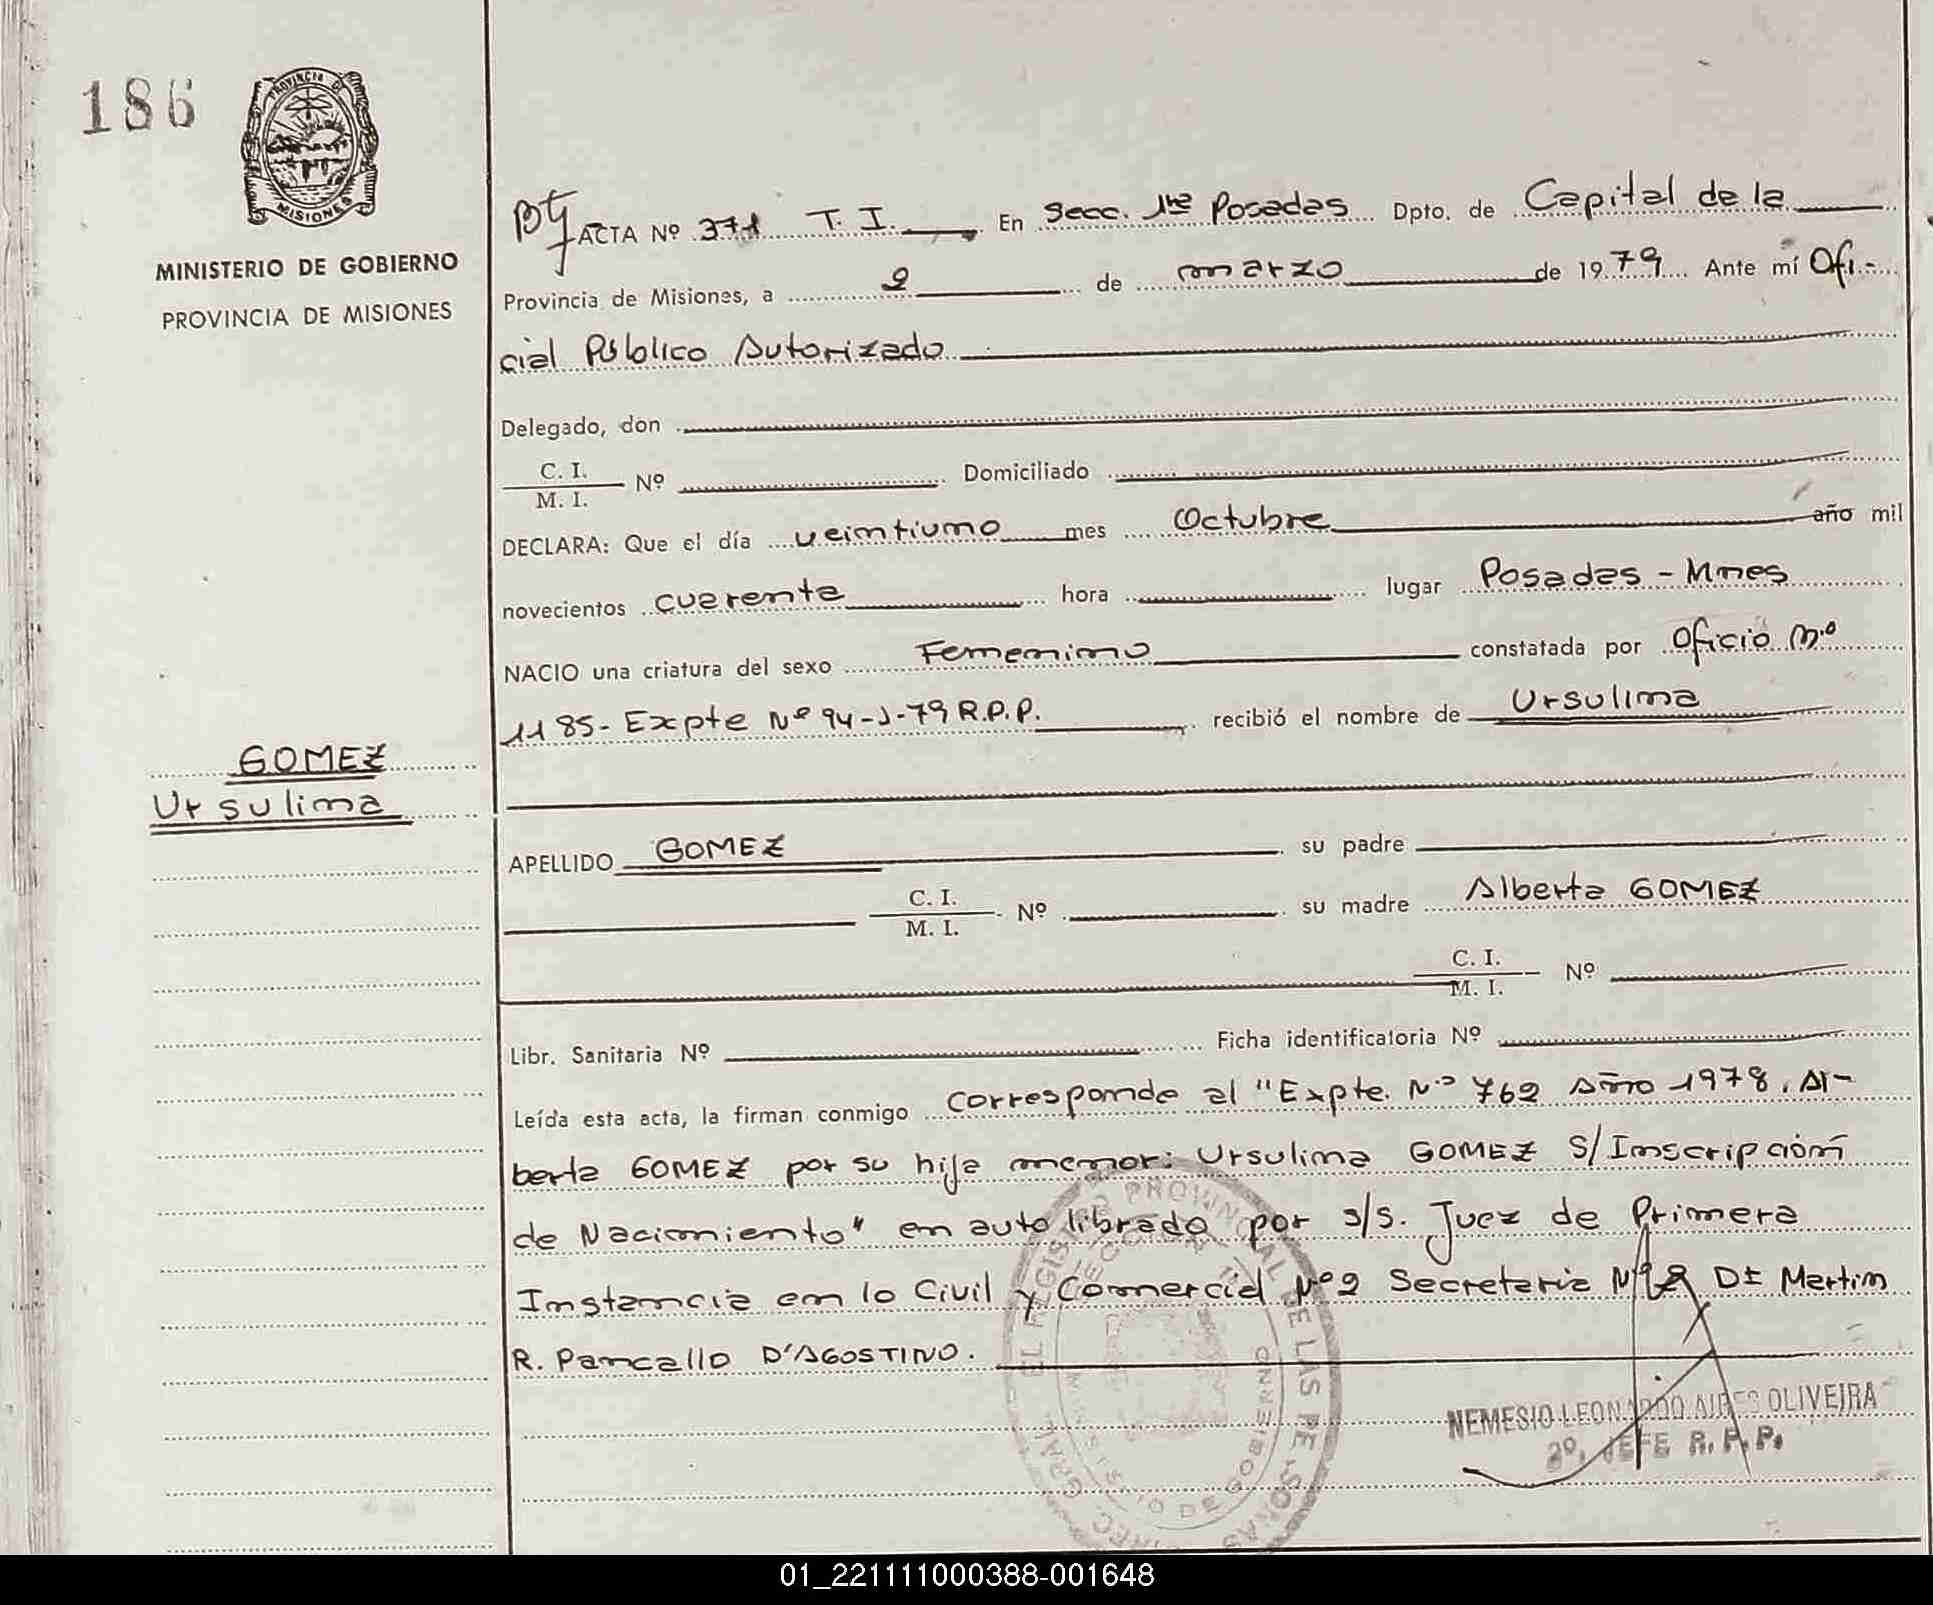 186
PROVINCIA DE
MISIONES
MINISTERIO DE GOBIERNO
PROVINCIA DE MISIONES
GOMEZ
Ursulina
ACTA Nº 371 T. I. En Secc. 1ra Posadas Dpto. de Capital de la
Provincia de Misiones, a 2 de marzo de 1979 Ante mí Ofi-
cial Público Autorizado
Delegado, don
C. I.
M. I. Nº Domiciliado
DECLARA: Que el día veintiuno mes Octubre año mil
novecientos cuarenta hora lugar Posadas - Mnes
NACIO una criatura del sexo Femenino constatada por Oficio Nº
1185- Expte Nº 94-J-79 R.P.P. recibió el nombre de Ursulina
APELLIDO GOMEZ su padre
C. I.
M. I. Nº su madre Alberta GOMEZ
C. I.
M. I. Nº
Libr. Sanitaria Nº Ficha identificatoria Nº
Leída esta acta, la firman conmigo corresponde al "Expte. Nº 762 Año 1978. Al-
berta GOMEZ por su hija menor: Ursulina GOMEZ S/Inscripción
de Nacimiento" en auto librado por s/s. Juez de Primera
Instancia en lo Civil y Comercial Nº 2 Secretaria Nº 2 Dr Martin
R. Pancallo D'AGOSTINO.
REGISTRO PROVINCIAL DE LAS PERSONAS
NEMESIO LEONARDO AIRES OLIVEIRA
2º. JEFE R. P. P.
01_221111000388-001648